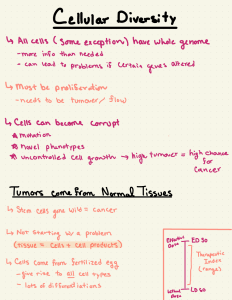 Cellular Diversity
↳ All cells (some exceptions) have whole genome
- more info than needed
- can lead to problems if certain genes altered
↳ Must be proliferation
- needs to be tumour / flow
↳ Cells can become corrupt
* mutation
* Novel phenotypes
* uncontrolled cell growth → high tumour = high chance for cancer
Tumors come from Normal Tissues
↳ Stem cells gone wild = cancer
↳ Not starting w/ a problem
(tissue = cells + cell products)
↳ Cells come from fertilized egg
- give rise to all cell types
- lots of differentiations
Effective Dose
ED 50
Therapeutic Index (range)
Lethal Dose
LD 50